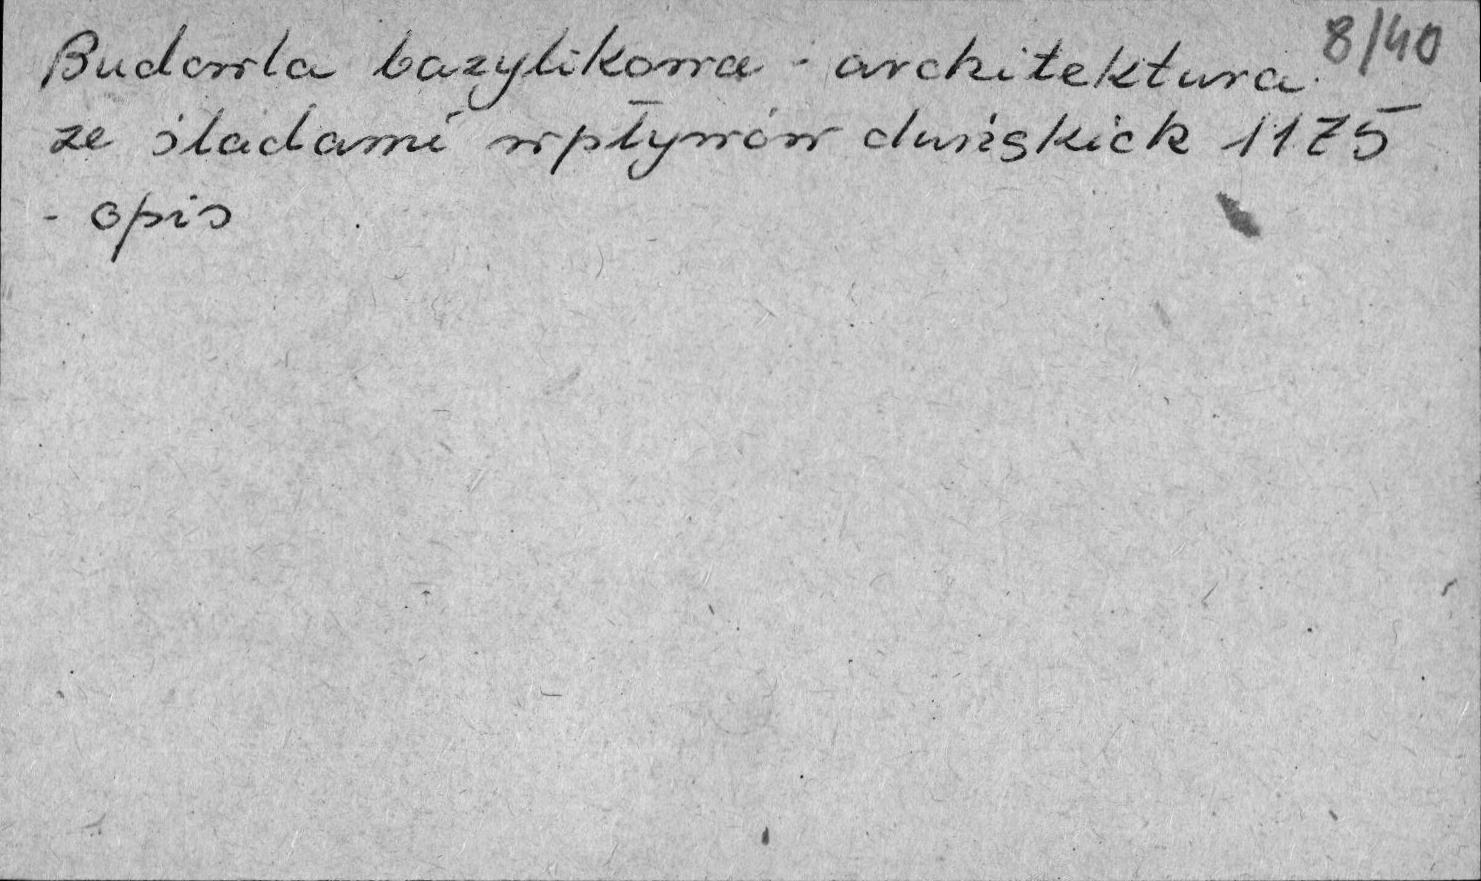 8/40
Budowla bazylikowa - architektura
ze śladami wpływów duńskich 1175
- opis